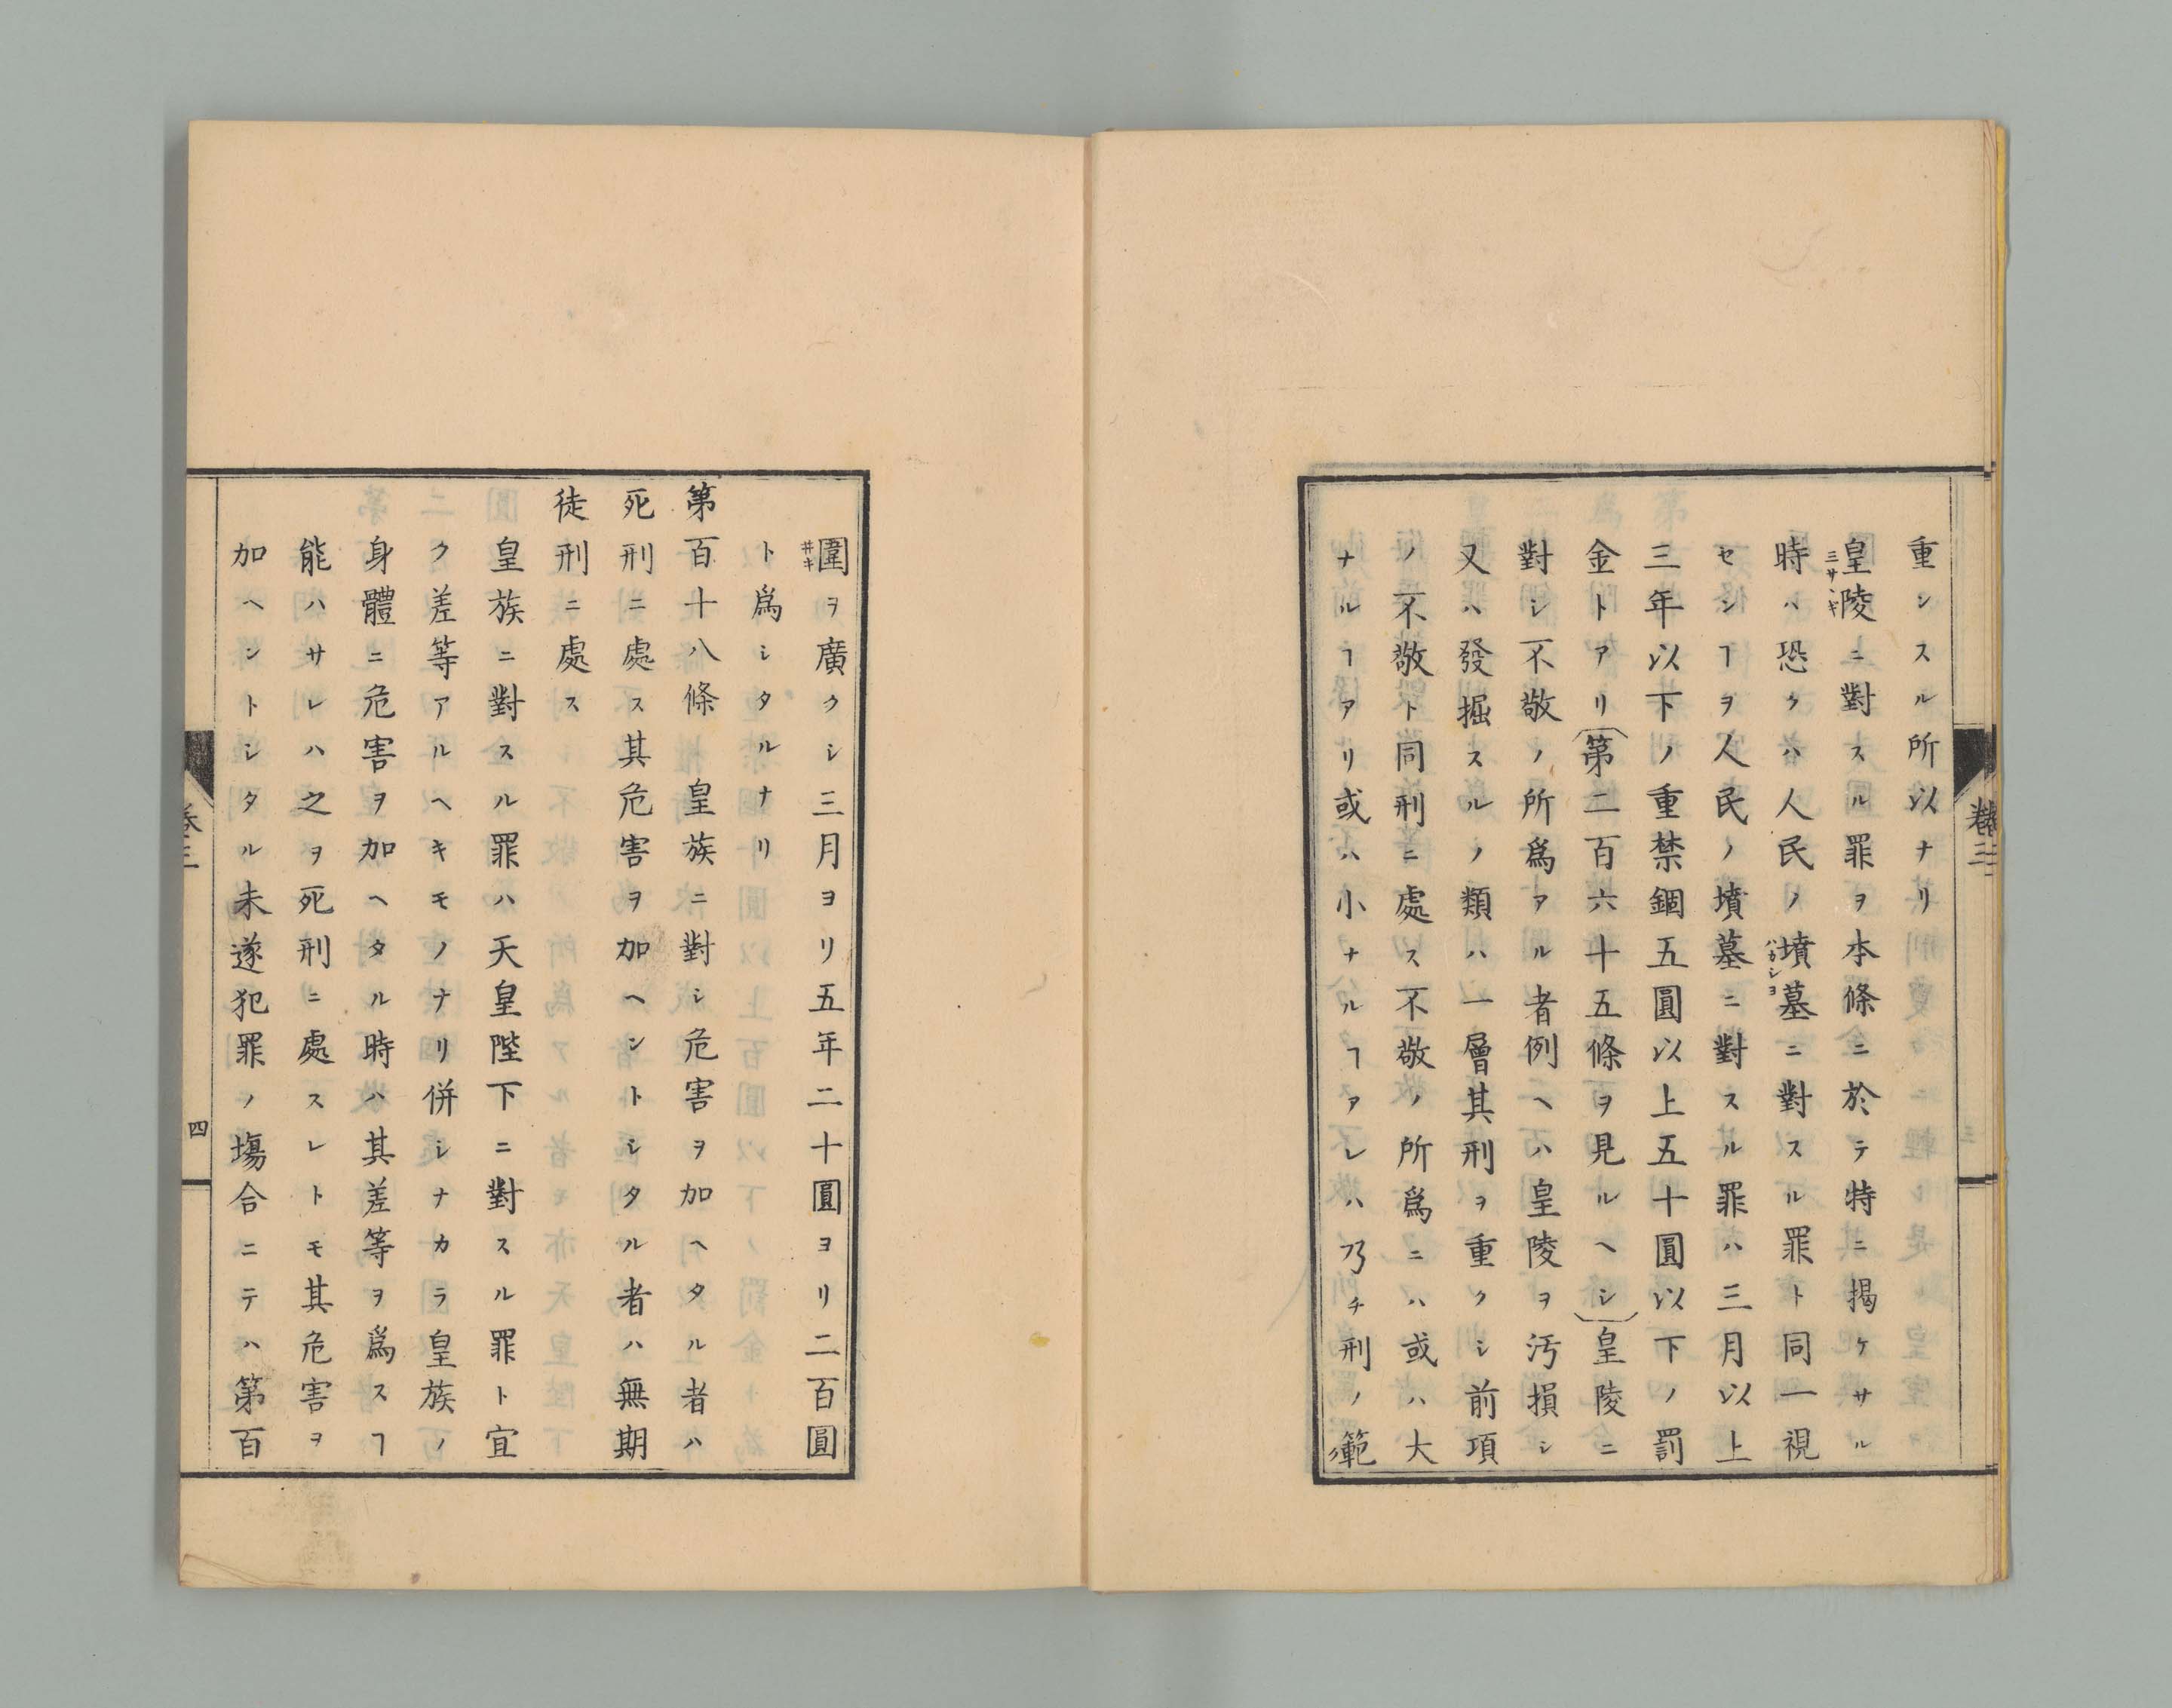 重ンスル所以ナリ
皇陵ニ對スル罪ヲ本條ニ於テ特ニ揭ケサル
時ハ恐クハ人民ノ墳墓ニ對スル罪ト同一視
センヿヲ人民ノ墳墓ニ對スル罪ハ三月以上
三年以下ノ重禁錮五圓以上五十圓以下ノ罰
金トアリ(第二百六十五條ヲ見ルヘシ)皇陵ニ
對シ不敬ノ所爲アル者例ヘハ皇陵ヲ汚損シ
又ハ發掘スルノ類ハ一層其刑ヲ重クシ前項
ノ不敬ト同刑ニ處ス不敬ノ所爲ニハ或ハ大
ナルヿアリ或ハ小ナルヿアレハ乃チ刑ノ範
卷三
圍ヲ廣クシ三月ヨリ五年二十圓ヨリ二百圓
ト爲シタルナリ
第百十八條 皇族ニ對シ危害ヲ加ヘタル者ハ
死刑ニ處ス其危害ヲ加ヘントシタル者ハ無期
徒刑ニ處ス
皇族ニ對スル罪ハ天皇陛下ニ對スル罪ト宜
ク差等アルヘキモノナリ併シナカラ皇族ノ
身體ニ危害ヲ加ヘタル時ハ其差等ヲ爲スヿ
能ハサレハ之ヲ死刑ニ處スレトモ其危害ヲ
加ヘントシタル未遂犯罪ノ塲合ニテハ第百
卷三
四